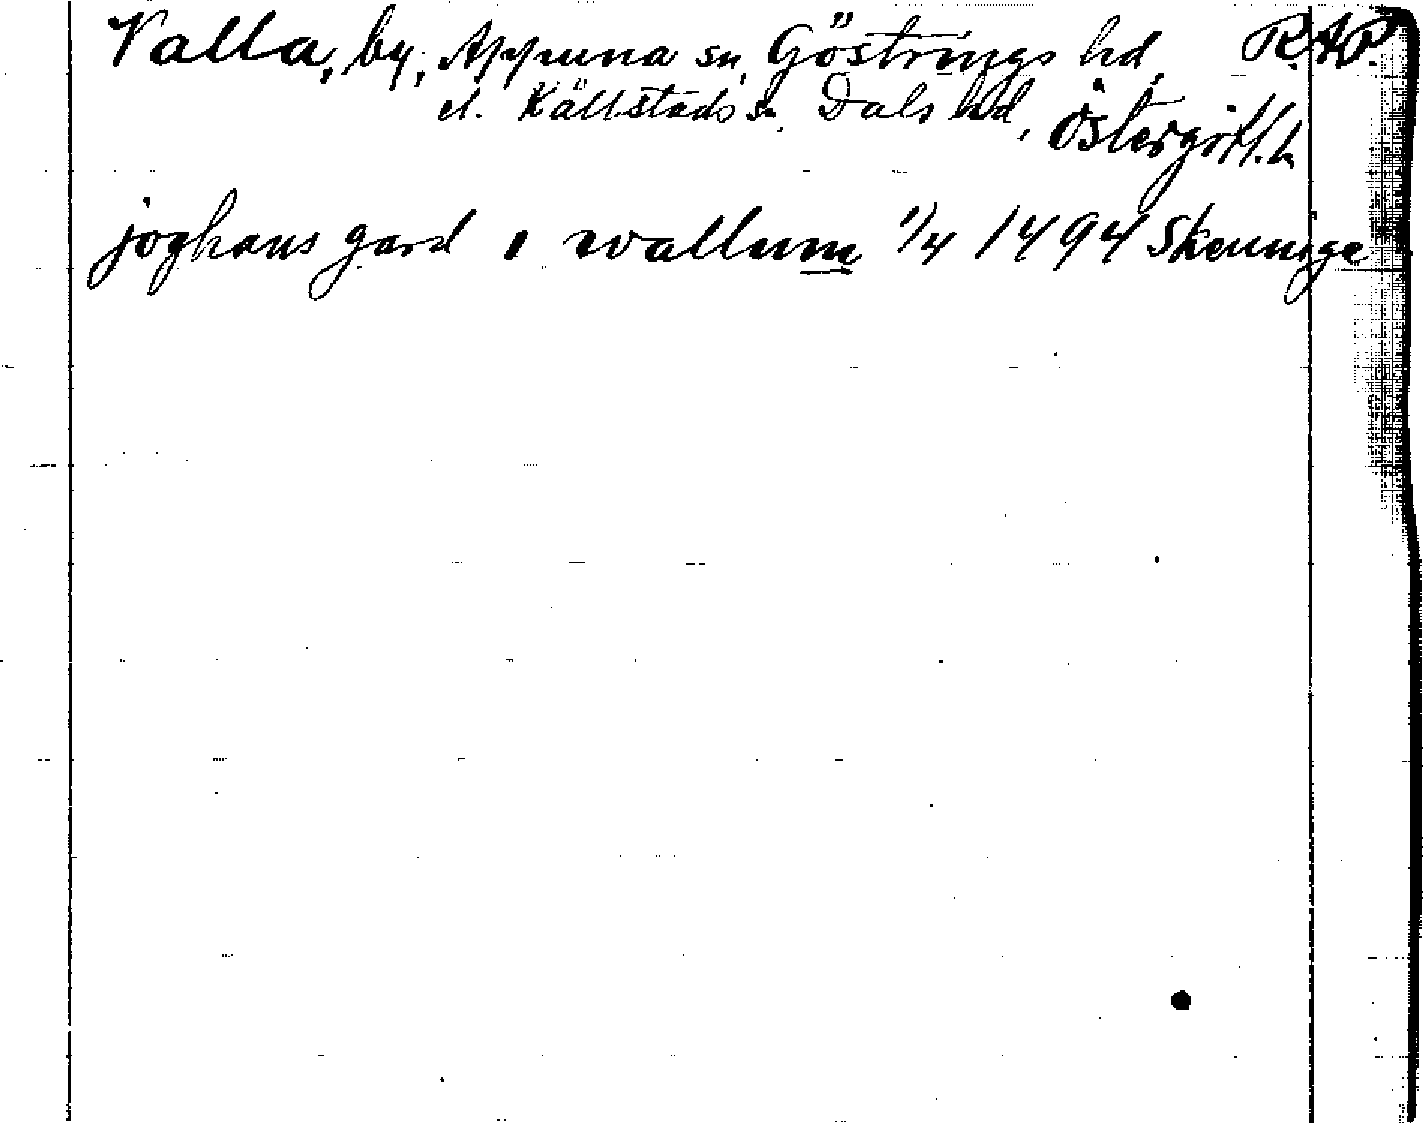 Valla, by, Appuna sn, Göstrings hd, R.A.P.
el. Källstads sn, Dals hd, Östergötl. l.
joghans gard i wallum 1/4 1494 Skeninge